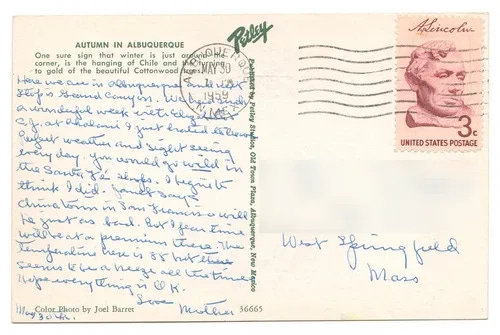 AUTUMN IN ALBUQUERQUE
One sure sign that winter is just around the
corner, is the hanging of Chile and the turning
to gold of the beautiful Cottonwood
Here we are in Albuquerque and next
stop is Grand Canyon. We have had
a wonderful week with
at I just hated to leave
Perfect weather and sight seeing
every day. You would go wild in
the Santa Fe shops. I
think I did. Janet says
Chinatown in San Francisco will
be just as bad. But I fear time
will be at a premium there. The
temperature here is 88 but there
seems to be a breeze all the time
Hope everything is O.K.
Love
Mother
May 30th
Color Photo by Joel Barret
36665
Petley
Published by Petley Studios, Old Town Plaza, Albuquerque, New Mexico
ALBUQUERQUE
MAY 30
1959
N. MEX.
A. Lincoln
3c
UNITED STATES POSTAGE
West Springfield
Mass